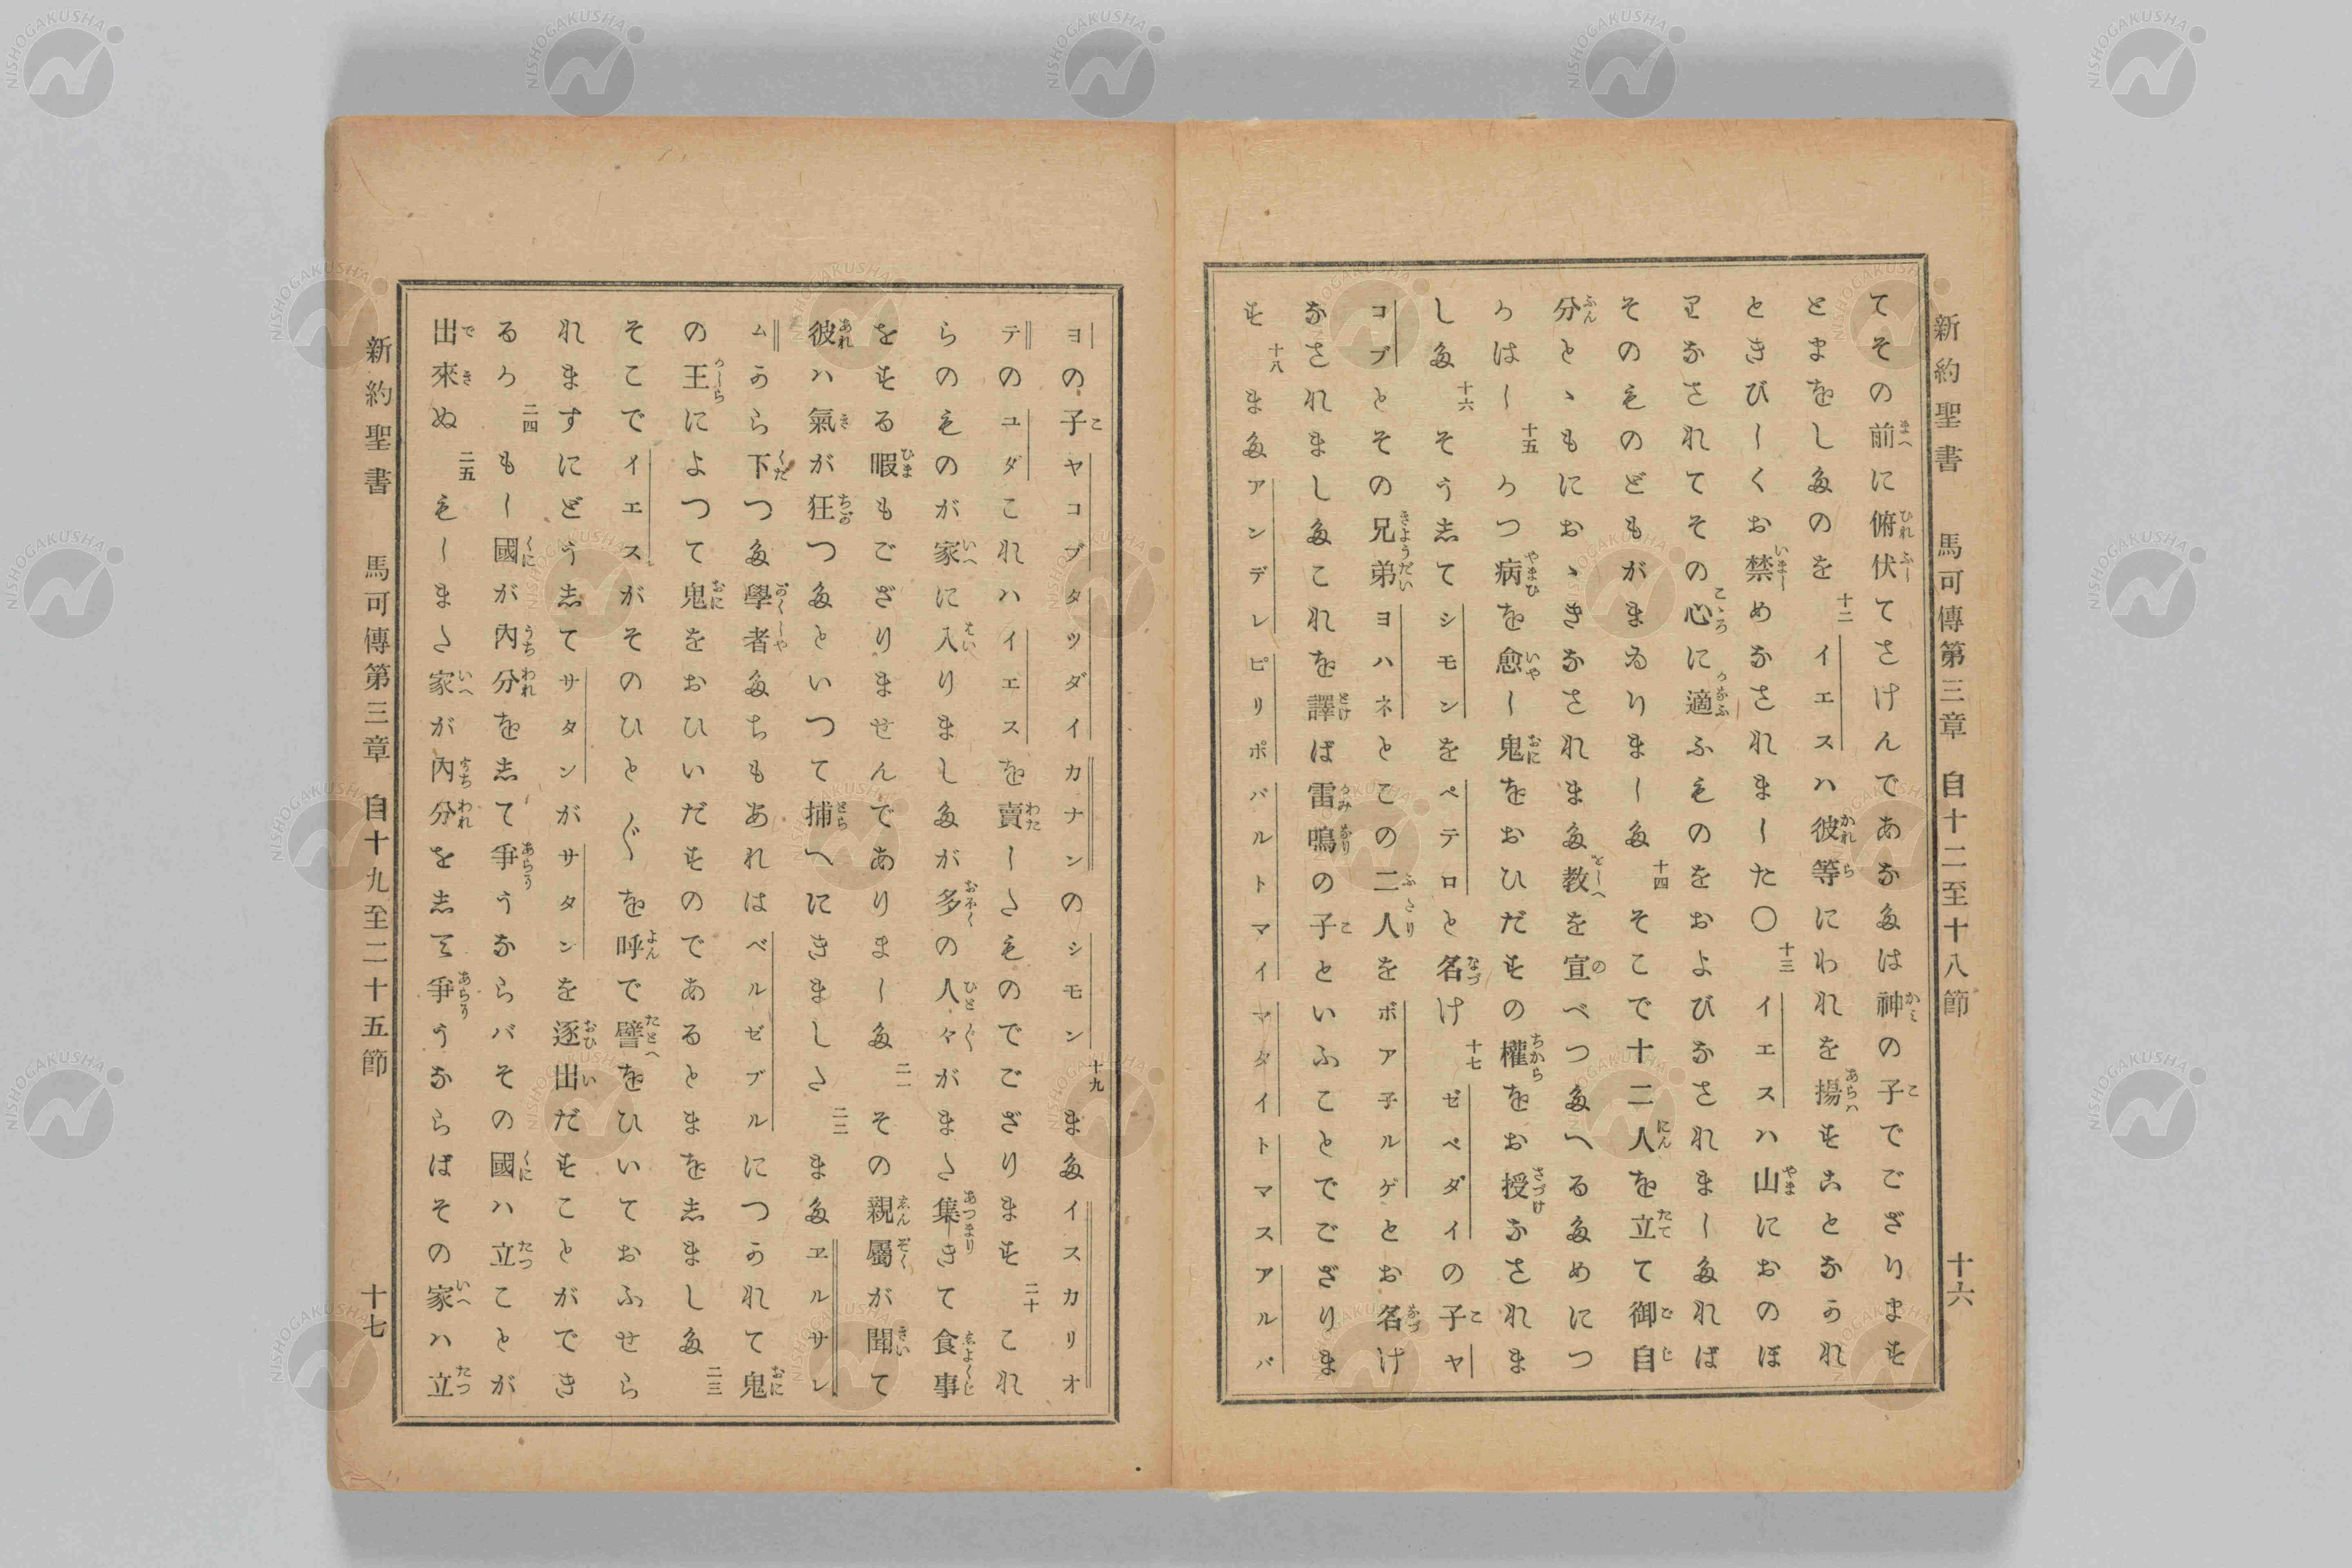 新約聖書 馬可傳第三章 自十二至十八節 十六
てその前に俯伏てさけんであなたは神の子でござります
とまをしたのを 十二 イエスハ彼等にわれを揚すことなかれ
ときびしくお禁めなされました〇 十三 イエスハ山におのほ
りなされてその心に適ふものをおよびなされましたれば
そのものどもがまゐりました 十四 そこで十二人を立て御自
分とゝもにおゝきなされまた教を宣べつたへるためにつ
かはし 十五 かつ病を愈し鬼をおひだすの權をお授なされま
した 十六 そう志てシモンをペテロと名け 十七 ゼベダイの子ヤ
コブとその兄弟ヨハネとこの二人をボア子ルゲとお名け
なされましたこれを譯ば雷鳴の子といふことでござりま
す 十八 またアンデレピリポバルトマイマタイトマスアルパ
ヨの子ヤコブタツダイカナンのシモン 十九 またイスカリオ
テのユダこれハイエスを賣したものでござります 二十 これ
らのものが家に入りましたが多の人々がまた集きて食事
をする暇もござりませんでありました 二一 その親屬が聞て
彼ハ氣が狂つたといつて捕へにきました 二二 またヱルサレ
ムから下つた學者たちもあれはベルゼブルにつかれて鬼
の王によつて鬼をおひいだすのであるとまを志ました 二三
そこでイエスがそのひと〲を呼で譬をひいておふせら
れますにどう志てサタンがサタンを逐出だすことができ
るか 二四 もし國が內分を志て爭うならバその國ハ立ことが
出來ぬ 二五 もしまた家が內分を志て爭うならばその家ハ立
新約聖書 馬可傳第三章 自十九至二十五節 十七
NISHOGAKUSHA